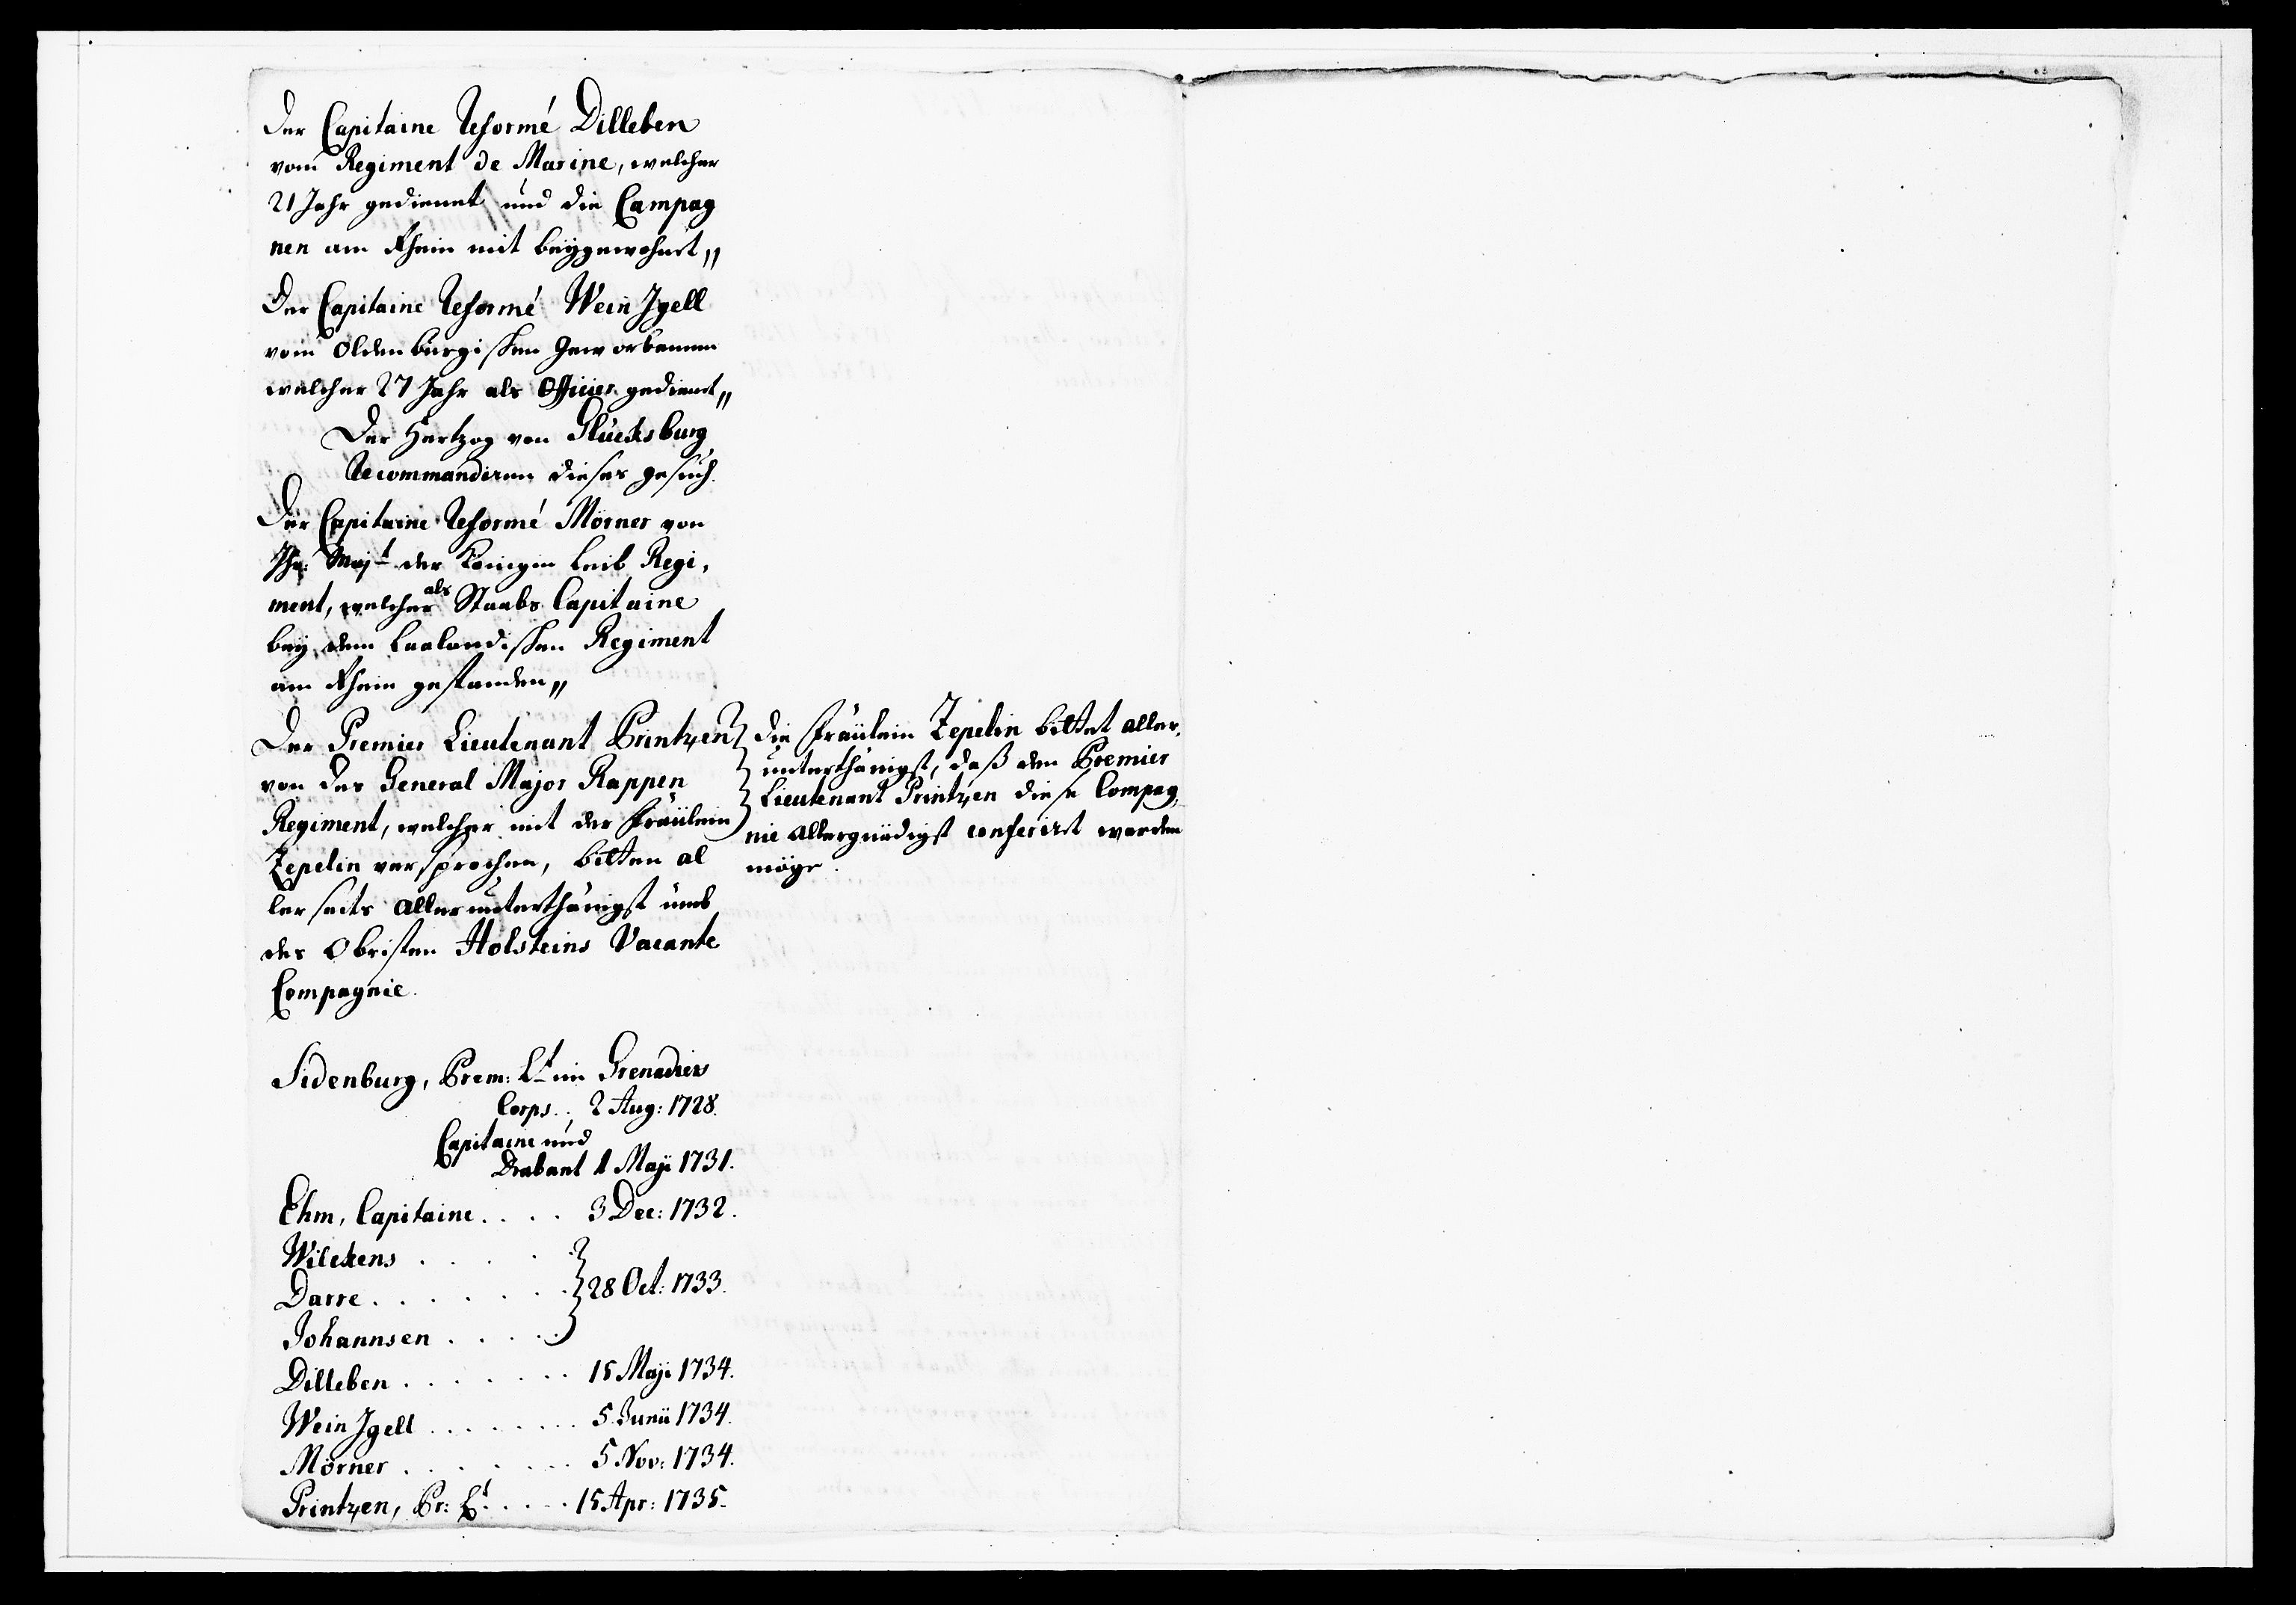 Der Capitaine Reformé Dilleben
vom Regiment de Marine, welcher
21 Jahr gedienet und die Campag
nen am Rhein mit beÿgewohnet,,
Der Capitaine Reformé Wein Jgell
vom Oldenburgischen Geworbenen
welcher 27 Jahr als Officier gedienet,,
Der Hertzog von Glücksburg
Recommandiren dieses gesuch.
Der Capitaine Reformé Mörner von
Ihr: Majt der Königin Leib Regi,
ment, welcher als Staabs Capitaine
beÿ dem Laalandischen Regiment
am Rhein gestanden,,
Der Premier Lieutenant Printzen
von der General Major Rappen
Regiment, welcher mit der Fräülein
Zepelin versprochen, bitten al
lerseits allerunterthänigst umb
des Obristen Holsteins Vacante
Compagnie.
die Fräülein Zepelin bittet aller,
unterthänigst, daß dem Premier
Lieutenant Printzen diese Compag,
nie allergnädigst conferirt werden
möge.
Sidenburg, Prem: Lt im Grenadier
Corps.. 2 Aug: 1728.
Capitaine und
Drabant 1 Maji 1731.
Ehm, Capitaine . . . . 3 Dec: 1732.
Wilckens . . . . .
Darre . . . . . . . 28 Oct: 1733.
Johannsen . . . . .
Dilleben . . . . . . . 15 Maji 1734.
Wein Jgell . . . . . . . 5 Junii 1734.
Mörner . . . . . . . 5 Nov: 1734.
Printzen, Pr: Lt . . . . 15 Apr: 1735.